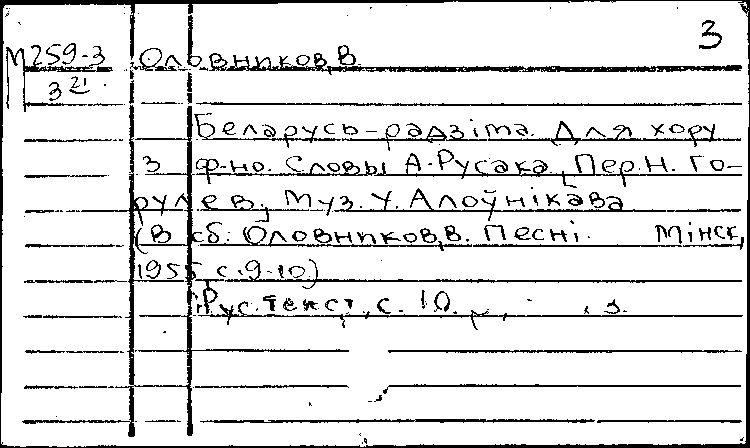 3
М259-3 Оловников, В.
3 21
Беларусь-радзіма. Для хору
з ф-но. Словы А.Русака, [Пер. Н. Го-
рулев], Муз. У. Алоўнікава
(В сб: Оловников, В. Песні. Мінск,
1955, с. 9-10)
Рус. текст, с. 10.